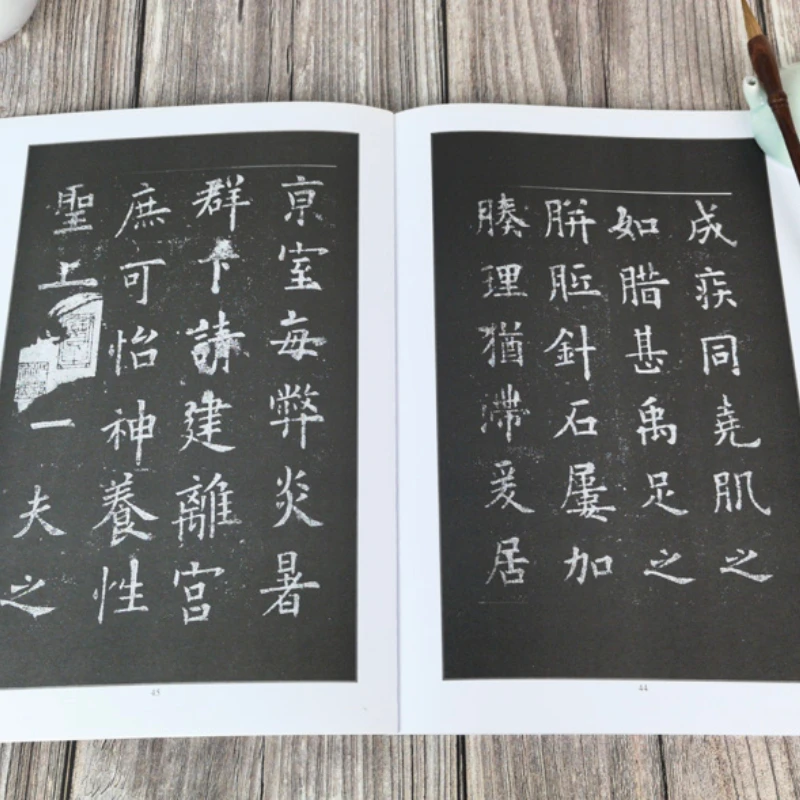 成疾同堯肌之
如腊甚禹足之
胼胝針石屢加
腠理猶滯爰居
44
京室每弊炎暑
群下請建離宮
庶可怡神養性
聖上一夫之
45